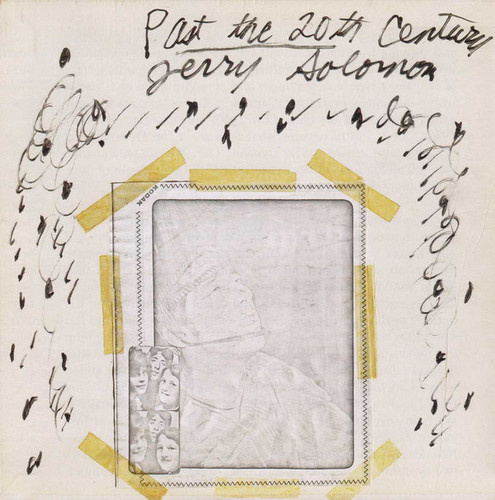 Past the 20th Century
Jerry Solomon
KODAK